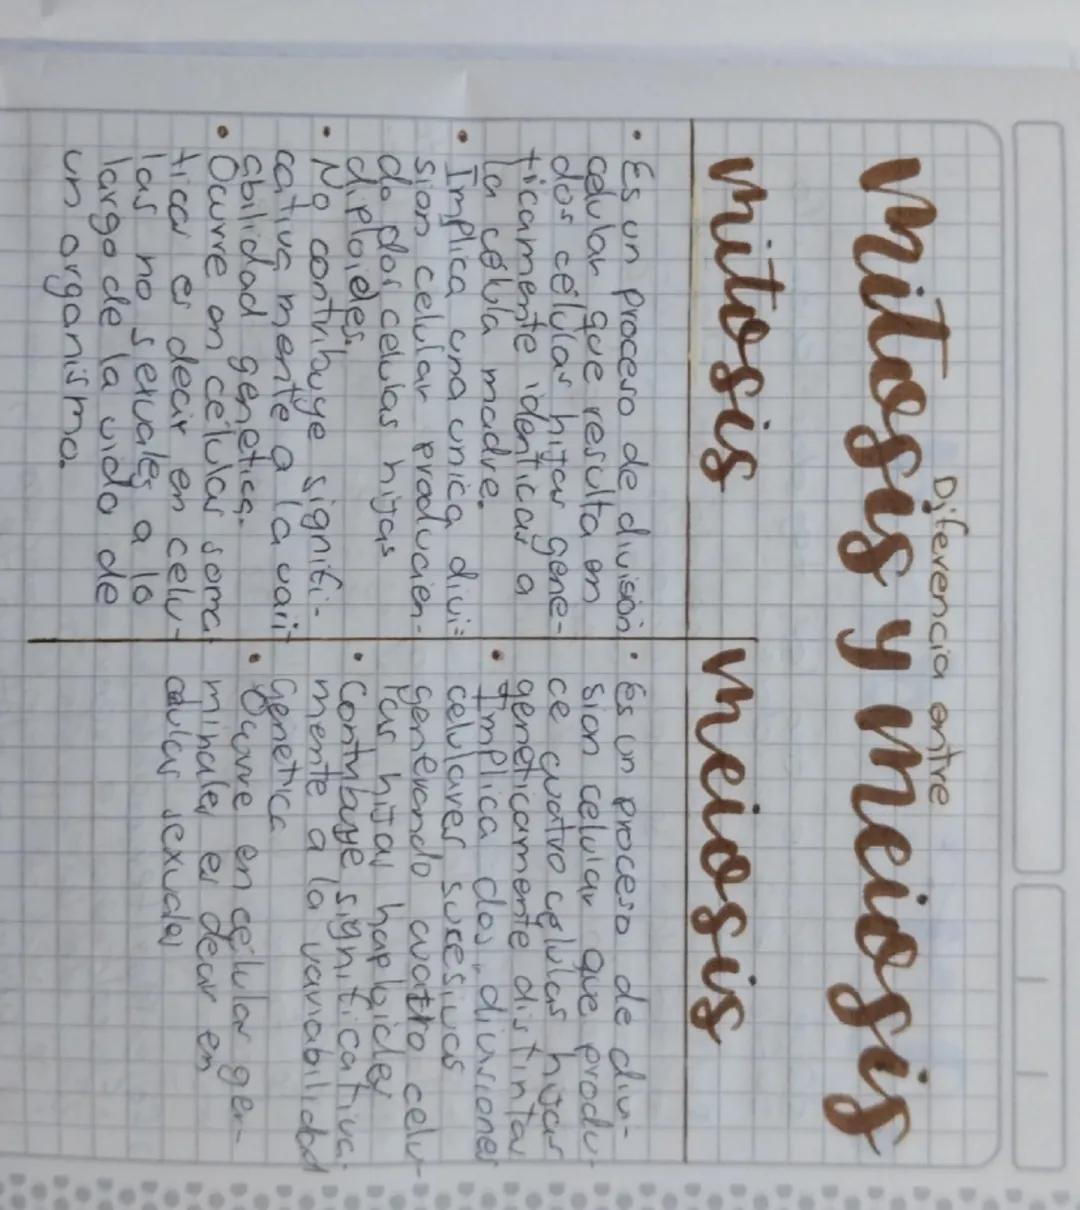 Diferencia entre
Mitosis y Meiosis
Mitosis
• Es un proceso de división
celular que resulta en
dos células hijas gene-
ticamente identicas a
la célula madre.
• Implica una unica divi-
sion celular producien-
do dos celulas hijas
diploides.
• No contribuye signifi-
cativa mente a la vari
abilidad genetica.
• Ocurre en células soma
ticas es decir en celu-
las no sexuales a lo
largo de la vida de
un organismo.
Meiosis
• Es un proceso de divi-
sion celular que produ-
ce cuatro celulas hijas
geneticamente distintas
• Implica dos divisiones
celulares sucesivas
generando cuatro celu-
las hijas haploides
• Contribuye significativa-
mente a la variabilidad
genetica
• Ocurre en celulas ger-
minales es decir en
celulas sexuales